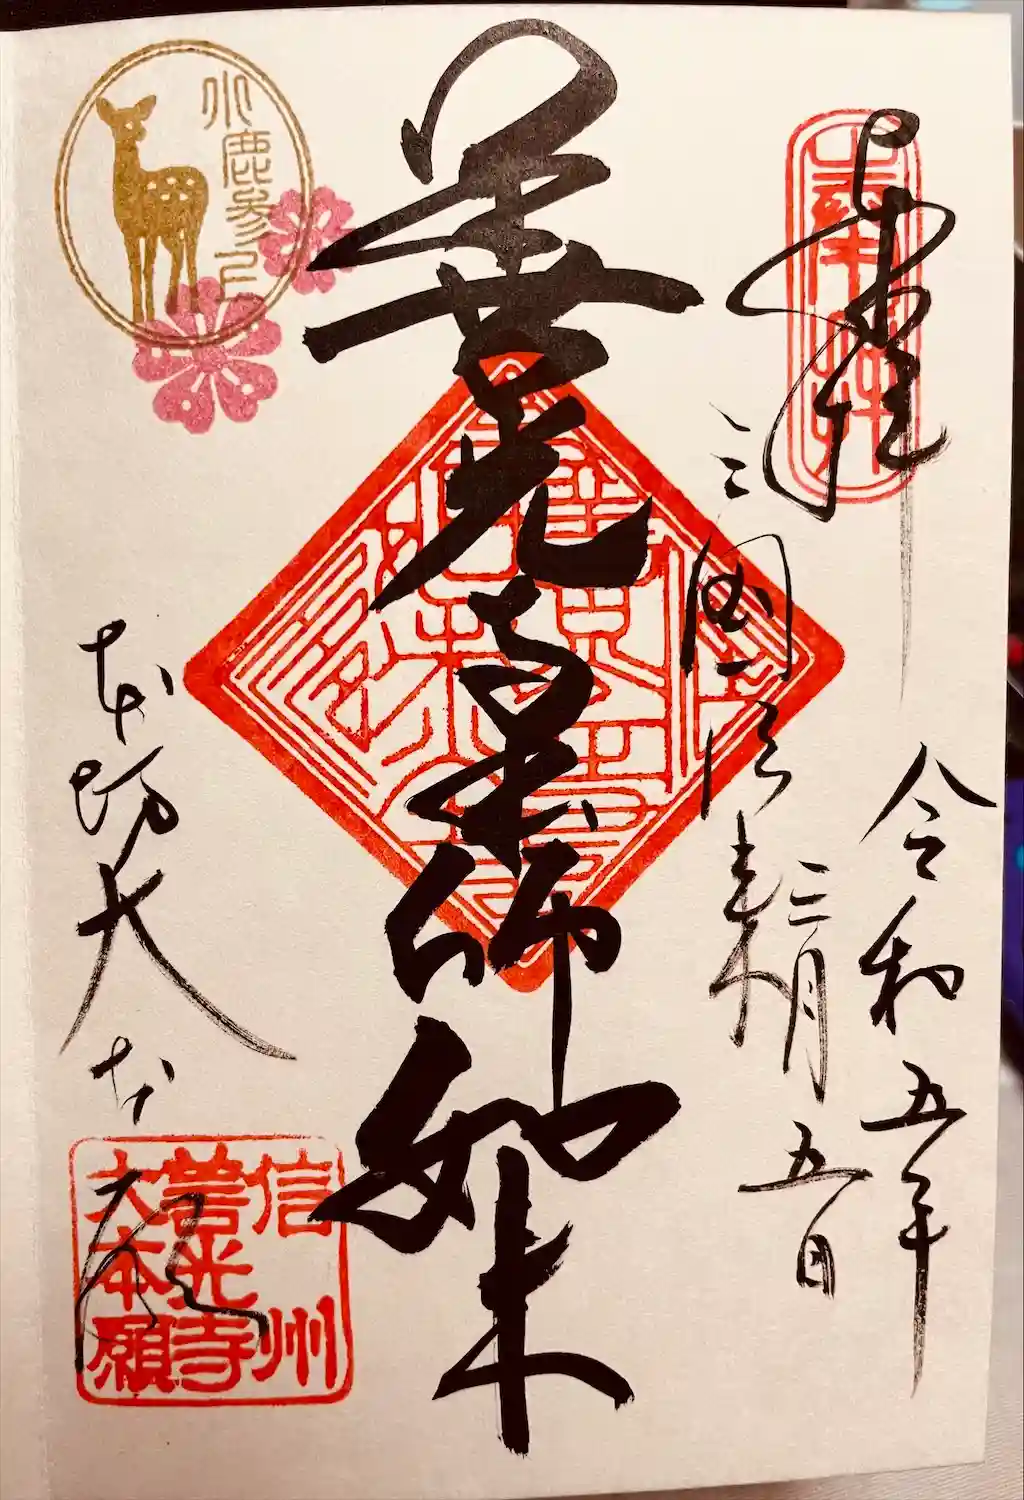 奉拝
奉拝
令和五年
三月五日
三国伝来
善光寺本師如来
本坊大本願
信州
善光寺
大本願